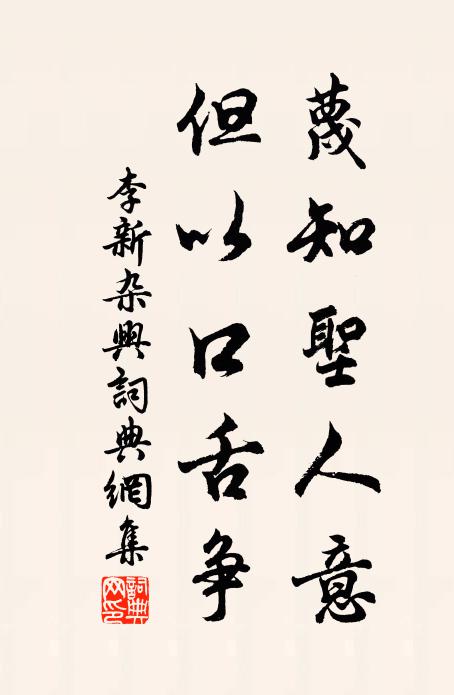 蔑知聖人意
但以口舌争
李新杂興詞典網集
詞典网印